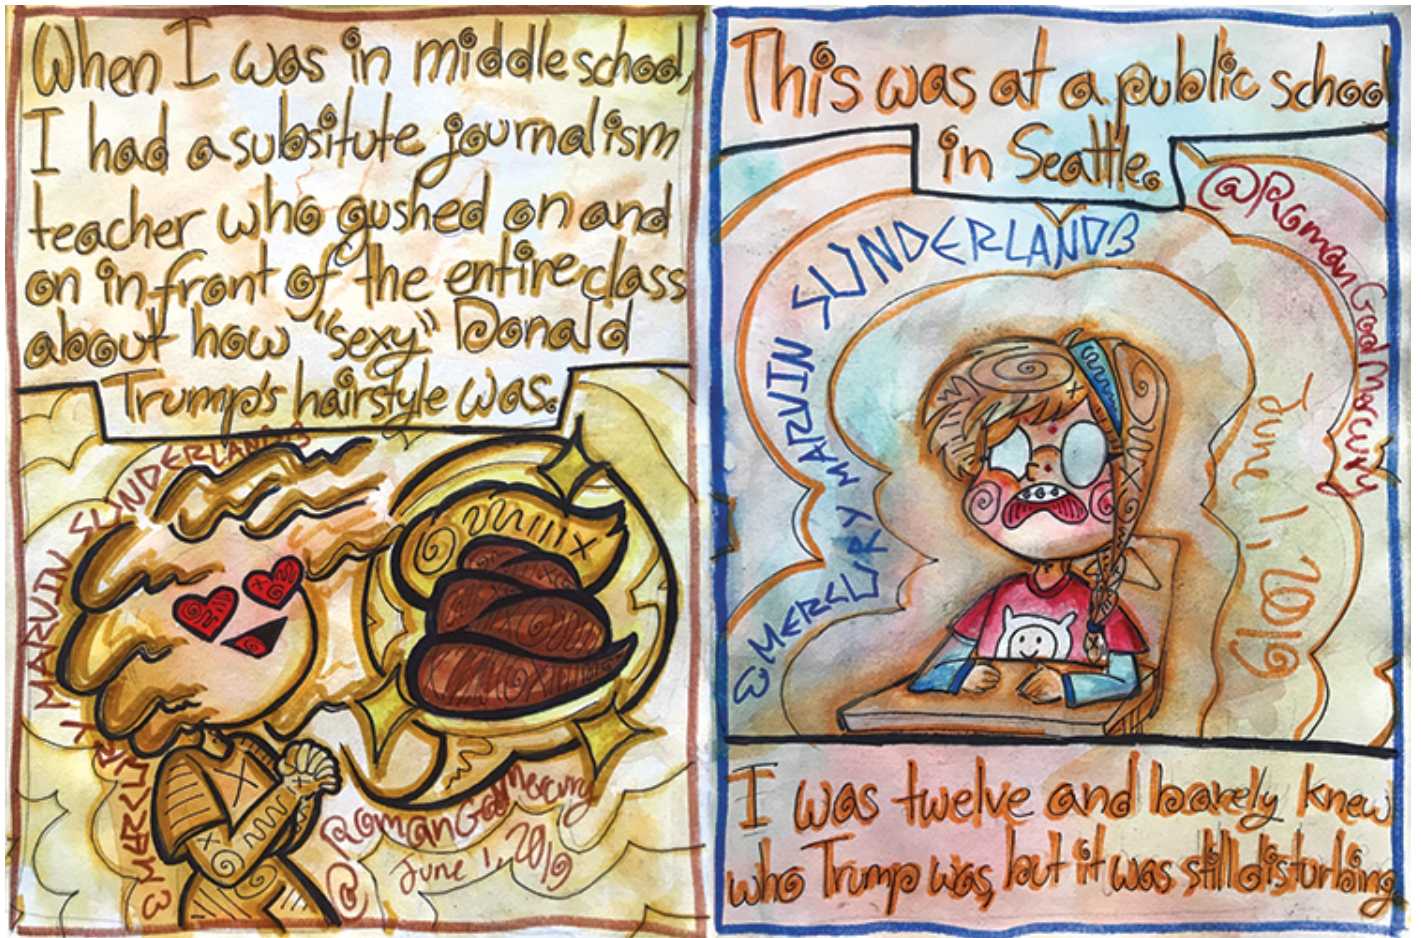 When I was in middle school,
I had a subsitute journalism
teacher who gushed on and
on in front of the entire class
about how "sexy" Donald
Trump's hairstyle was.
MERCURY MARVIN SUNDERLAND
@RomanGodMercury
June 1, 2019
This was at a public school
in Seattle.
@RomanGodMercury
MERCURY MARVIN SUNDERLAND
June 1, 2019
I was twelve and barely knew
who Trump was, but it was still disturbing.